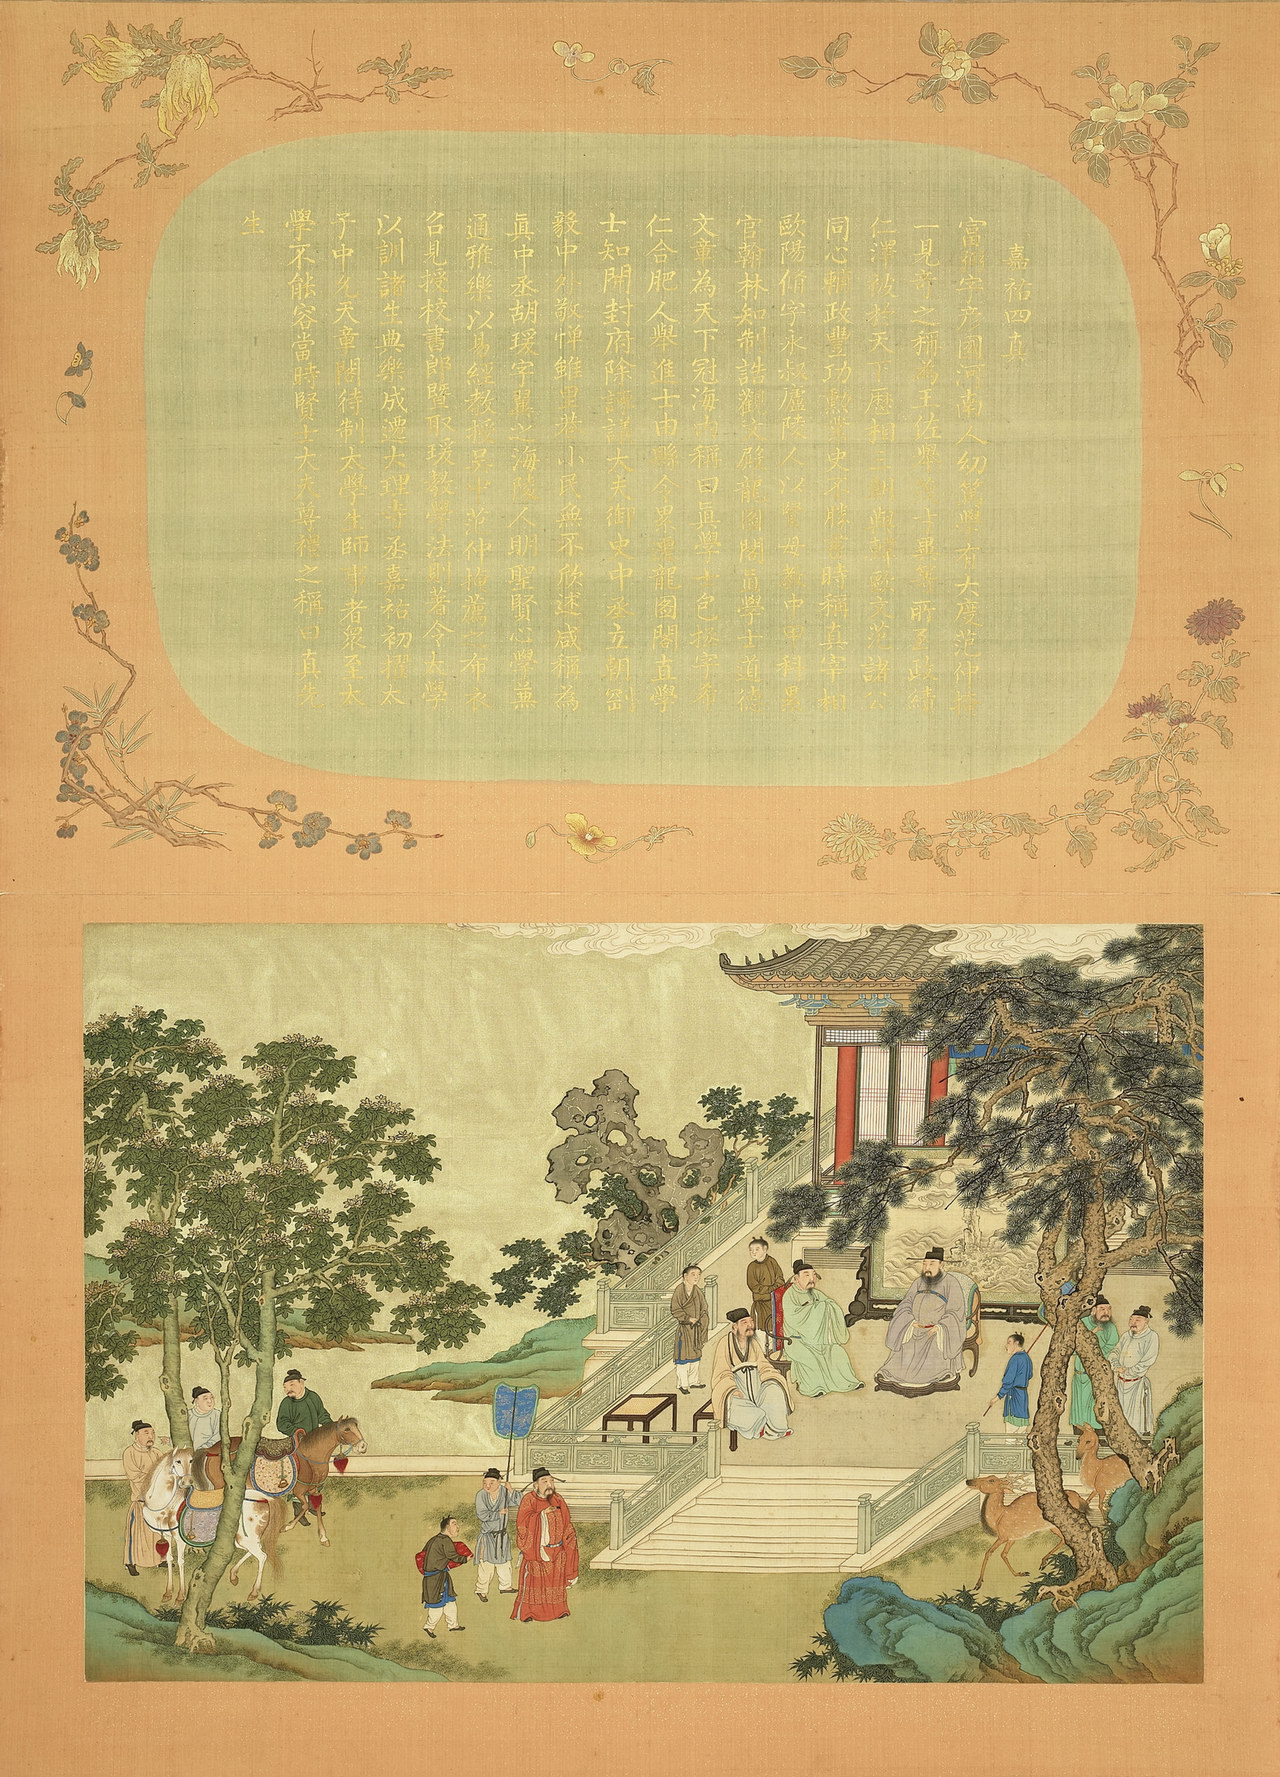 嘉祐四真
富弼字彥國河南人幼篤學有大度范仲淹
一見奇之稱為王佐舉茂才異等所至政績
仁澤被於天下歷相三朝與韓歐文范諸公
同心輔政豐功懋蹟史不勝書時稱真宰相
歐陽修字永叔廬陵人以學母為中甲科累
官翰林知制誥觀文殿龍圖閣直學士道德
文章為天下冠海內稱曰真學士包拯字希
仁合肥人舉進士由縣令累遷龍圖閣直學
士知開封府除諫議大夫御史中丞立朝剛
毅中外敬憚雖里巷小民無不欣述咸稱為
真中丞胡瑗字翼之海陵人明聖賢心學兼
通雅樂以易經教授吳中范仲淹薦之布衣
召見授校書郎暨取瑗教學法則著令太學
以訓諸生典樂成遷大理寺丞嘉祐初擢太
子中允天章閣待制太學生師事者衆至太
學不能容當時賢士大夫尊禮之稱曰真先
生